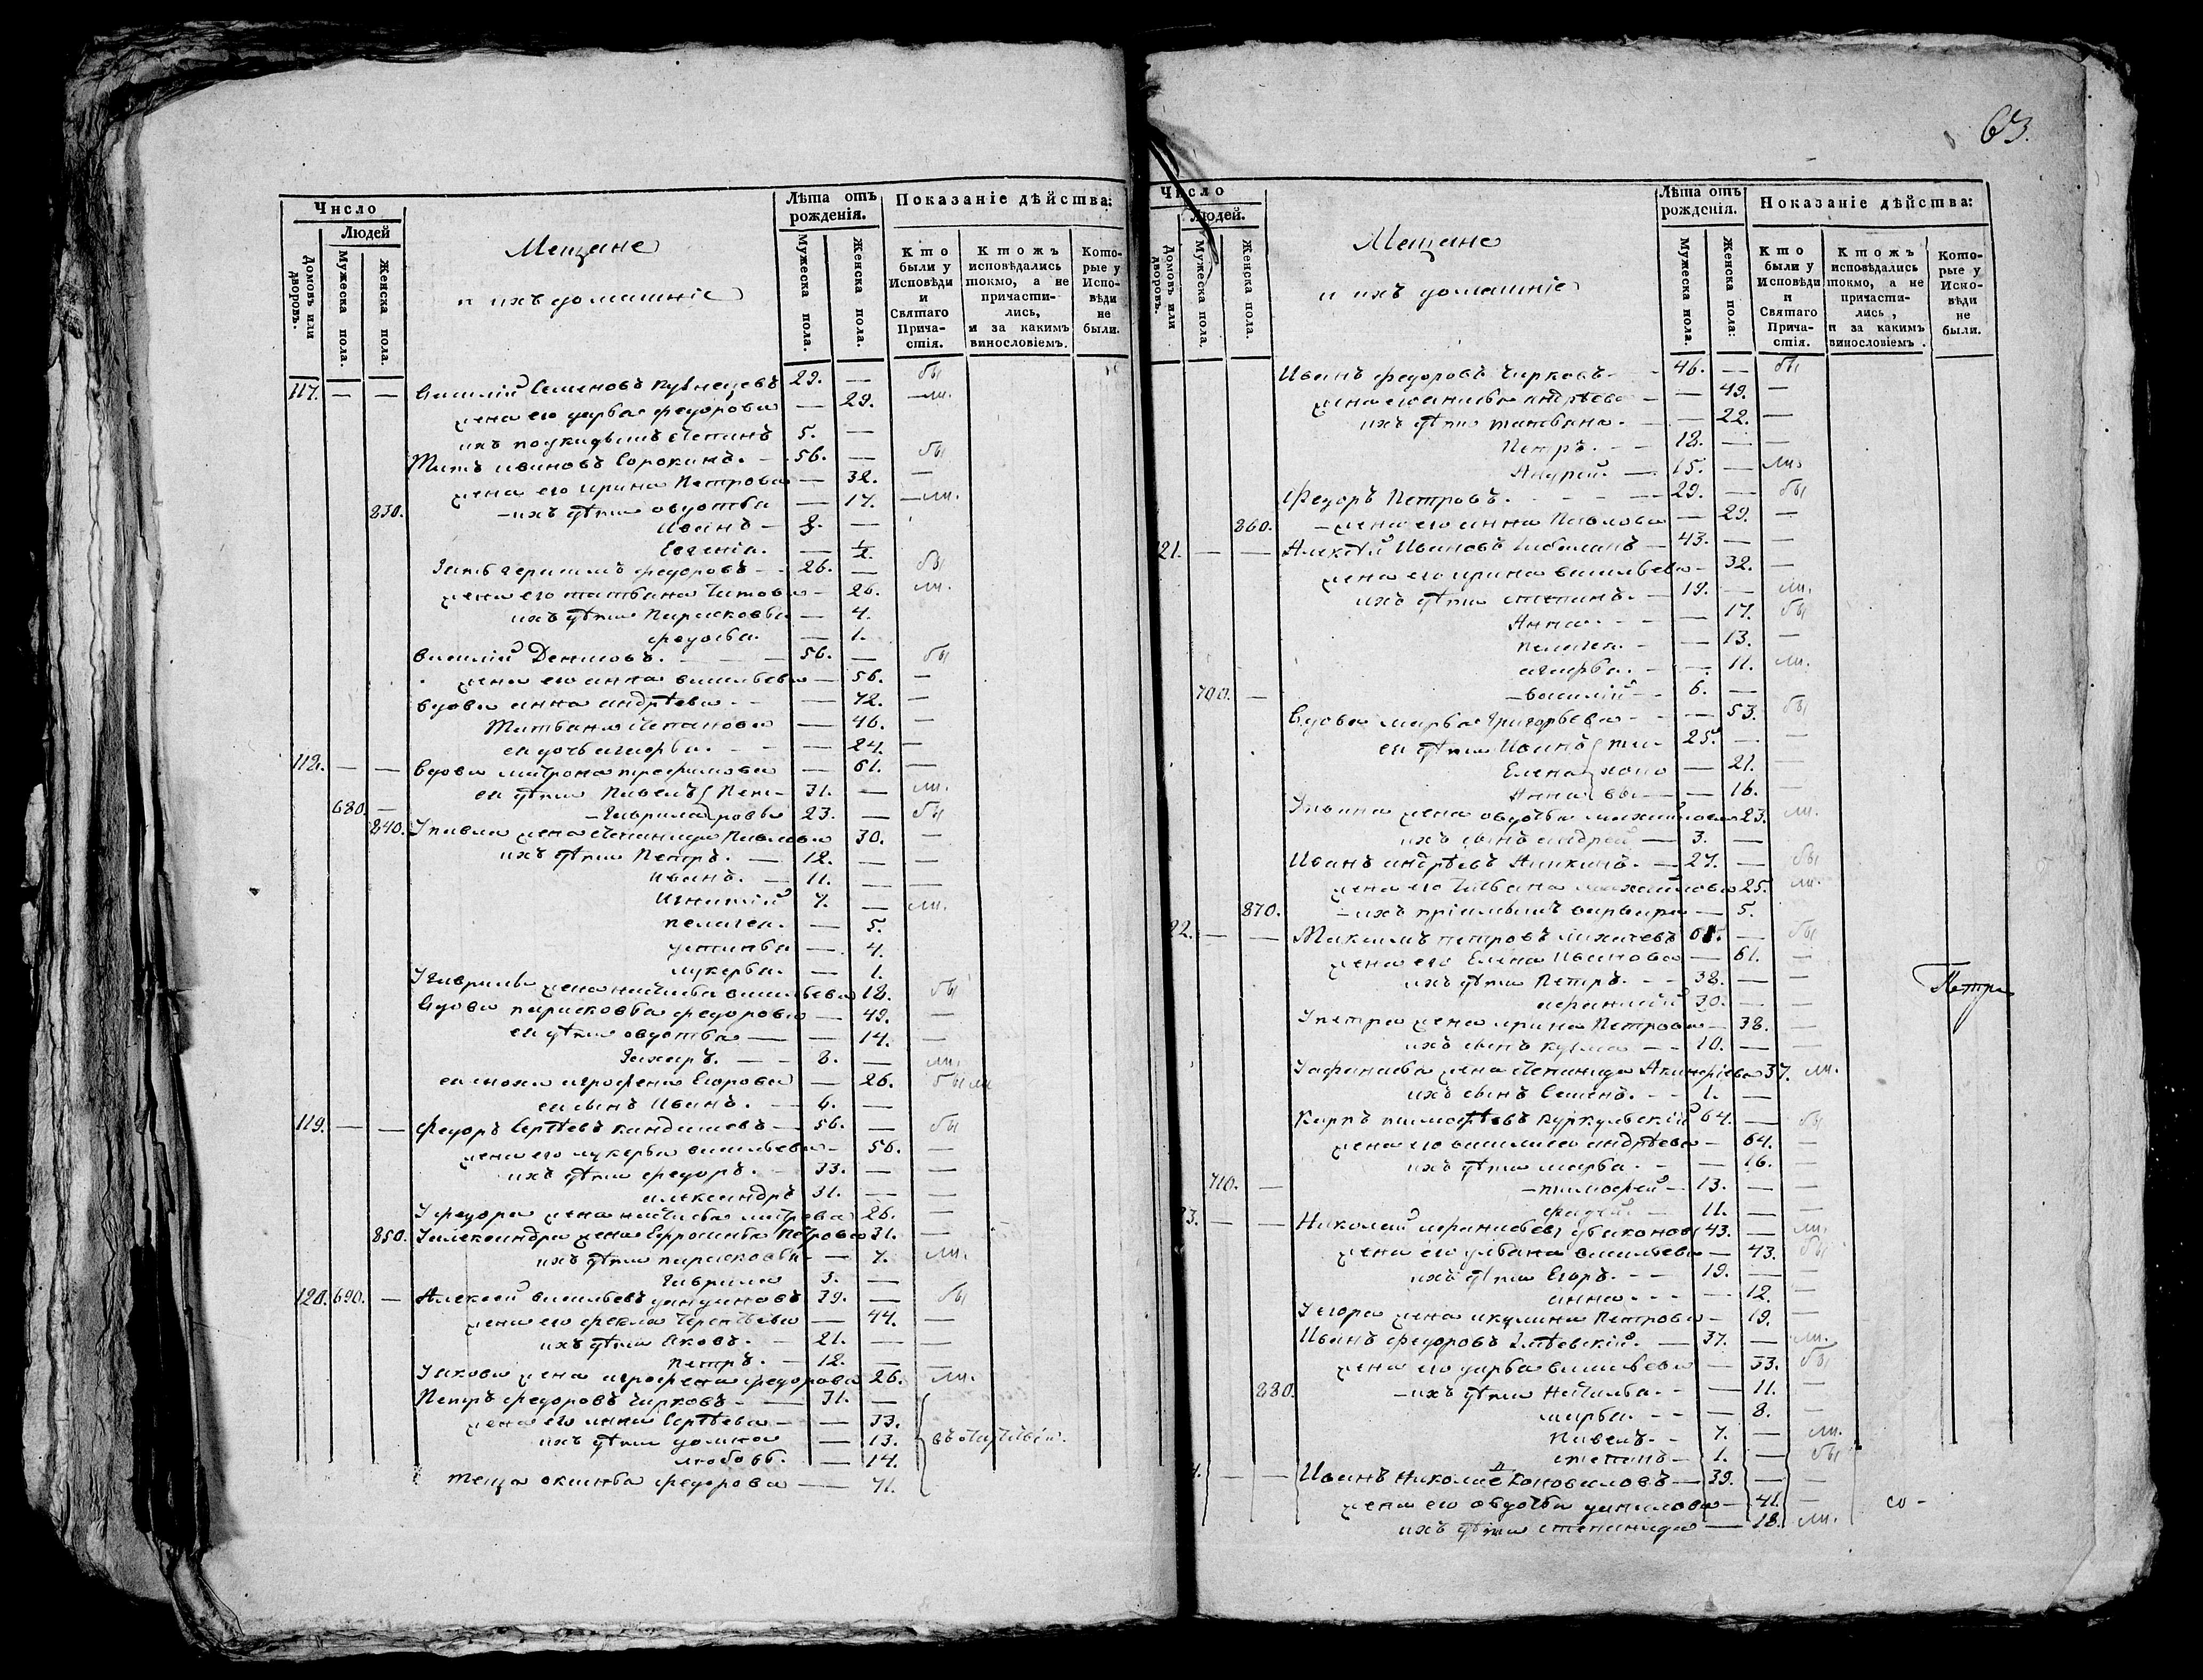 Число
Людей
Домовъ или дворовъ.
Мужеска пола.
Женска пола.
Мещане
и ихъ домашніе
Лѣта отъ рожденія.
Мужеска пола.
Женска пола.
Показаніе дѣйства:
Кто были у Исповѣди и Святаго Причастія.
Ктожъ исповѣдались токмо, а не причастились, и за какимъ винословіемъ.
Которые у Исповѣди не были.
117. — — Василій Семеновъ Кузнецовъ 29. — бы
жена его дарья федорова — 29. — ли.
ихъ подкидышъ Степанъ 5. —
Титъ ивановъ Сорокинъ. — 56. — бы
жена его ирина Петрова — 32. —
830. — ихъ дѣти авдотья — 17. — ли.
Иванъ — 8. —
Евгенія. — ½.
Зять герасимъ федоровъ — 26. — бы
жена его татьяна Титова — 26. ли.
ихъ дѣти Парасковья — 4.
федосья. — 1.
Василій Денисовъ. — 56. — бы
жена его анна васильева — 56. —
Вдова анна андрѣева — 72. —
Татьяна Степанова — 46. —
ея дочь агафья. — 24. —
118. — — Вдова матрона трофимова — 61. —
ея дѣти Павелъ Пет- 31. — ли.
680. — Гаврила ровы 23. — бы
840. У павла жена Степанида Павлова 30. —
ихъ дѣти Петръ. — 12. — —
иванъ. — 11. — —
Игнатій 7. — ли.
пелагея. — 5.
устинья — 4.
лукерья. — 1.
У гаврилы жена наталья васильева 18. бы
Вдова парасковья федорова — 49. —
ея дѣти авдотья — — 14. —
Захаръ. — 8. — ли.
ея сноха агрофена Егорова — 26. бы ли
ея сынъ Иванъ. — 6. —
119. — — Федоръ Сергѣевъ кандашевъ — 56. — бы
жена его лукерья васильева — 56. —
ихъ дѣти федоръ. — 33. — —
александръ 31. — —
У федора жена наталья митрева 26. —
850. У александра жена Ефросинья Петрова 31. —
ихъ дѣти парасковья — 7. ли.
гаврила 3. —
120. 690. — Алексей васильевъ 39. — бы
жена его фекла Терентьева — 44. —
ихъ дѣти Яковъ. — 21. — —
петръ. — 12. — —
У якова жена агрофена федорова 26. ли.
Петръ федоровъ Чирковъ — 31. —
жена его анна Сергѣева — — 33.
ихъ дѣти домна — 13. въ отлучкѣ
любовь. — 14.
теща аксинья федорова — 71.
63.
Число
Людей.
Домовъ или дворовъ.
Мужеска пола.
Женска пола.
Мещане
и ихъ домашніе
Лѣта отъ рожденія.
Мужеска пола.
Женска пола:
Показаніе дѣйства:
Кто были у Исповѣди и Святаго Причастія.
Ктожъ исповѣдались токмо, а не причастились, и за какимъ винословіемъ.
Которые у Исповѣди не были.
Иванъ федоровъ Чирковъ — 46. — бы
жена его андрѣева — 49. —
ихъ дѣти татьяна. — 22. —
Петръ. — 18. — —
Андрей. — 15. — ли.
Федоръ Петровъ. — 29. — бы
860. — жена его анна Павлова — 29. —
21. — — Алексѣй Ивановъ — 43. — —
жена его ирина васильева — 32. —
ихъ дѣти степанъ. — 19. — ли.
Анна — — 17. бы
пелагея. — 13. —
агафья. — 11. ли.
700. — — василій — 6. —
Вдова марья Григорьева — — 53. бы
ея дѣти Иванъ ти- 25. — —
Елена хоно — 21. —
Анна вы — — 16. —
У ивана жена авдотья михайлова 23. ли.
ихъ сынъ андрей — 3. —
Иванъ андрѣевъ Аникинъ. — 27. — бы
жена его михайлова 25. ли.
870. — ихъ пріемышъ варвара — 5.
22. — — Максимъ петровъ лихачевъ 65. — бы
жена его Елена Иванова — 61. —
ихъ дѣти Петръ. — 38. — —
афанасій 30. — —
Петра
У петра жена ирина Петрова — 38. —
ихъ сынъ кузма — 10. — —
У афанасья жена Степанида 37. ли.
ихъ сынъ Семенъ. — 1. —
Карпъ тимофѣевъ куркульскій 64. — бы
жена его василиса андрѣева — 64. —
ихъ дѣти марья. — — 16. —
710. — — тимофей — 13. — —
— 11. — —
23. — — Николай афанасьевъ дьяконовъ 43. — ли.
жена его ульяна васильева — 43. бы
ихъ дѣти Егоръ. — 19. — —
анна — — 12. —
У егора жена акулина Петрова — 19. —
Иванъ федоровъ Змѣевскій. — 37. — ли.
жена его дарья васильева — 33. бы
880. — ихъ дѣти Наталья. — — 11. —
марья. — — 8. —
Павелъ. — 7. — ли.
степанъ — 1. — бы
4. — — Иванъ Николаевъ Коноваловъ — 39. — —
жена его авдотья данилова — 41. —
ихъ дѣти степанида — 18. ли.
со -